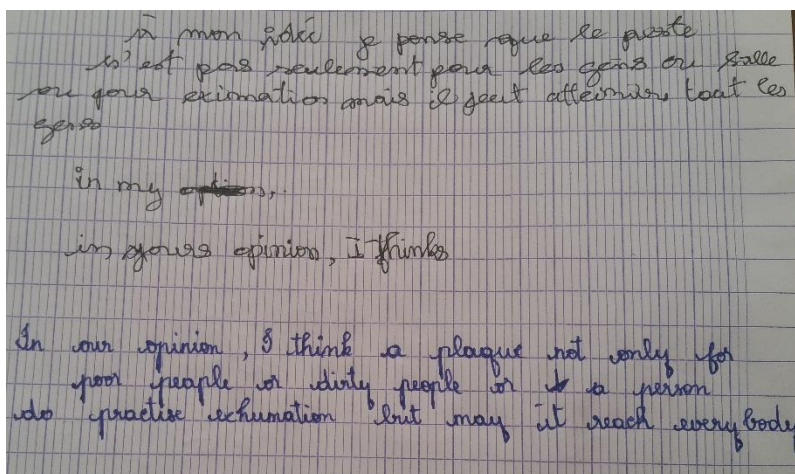 à mon idée je pense que le peste
n'est pas seulement pour les gens ou salle
ou pour eximation mais il peut atteindre tout les
gens
in my
in yours opinion, I thinks
In our opinion, I think a plaque not only for
poor peaple or dirty people or a person
do practise exhumation but may it reach everybody